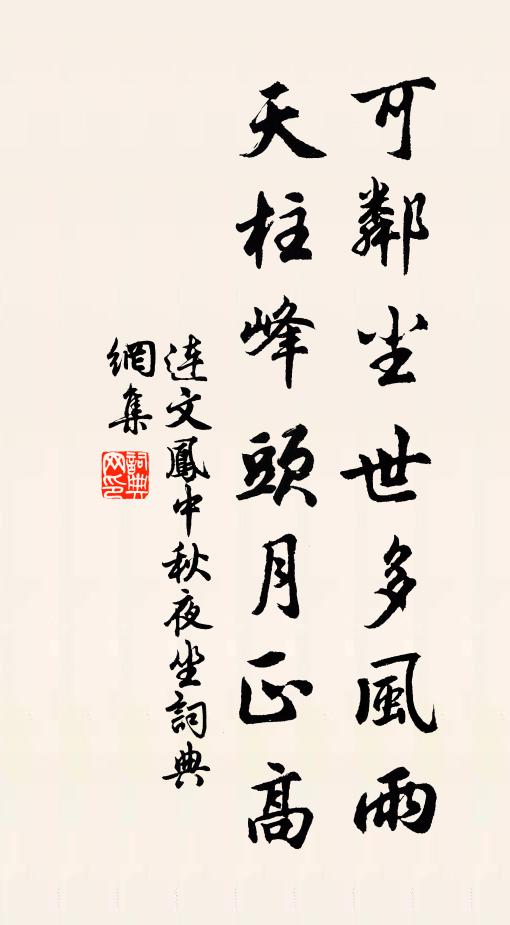 可鄰尘世多風雨
天柱峰頭月正高
连文鳳中秋夜坐詞典
網集
詞典
网印